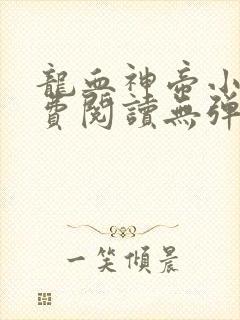 龍血神帝小
費閱讀無彈
一笑傾晨